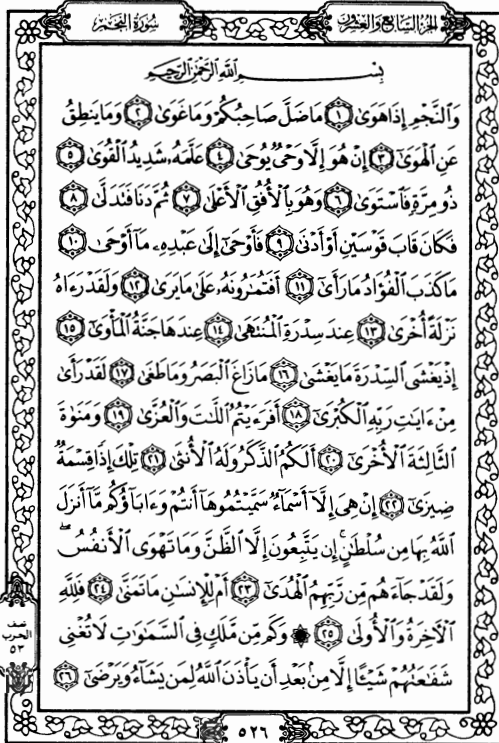 الجزء السابع والعشرون
سورة النجم
بِسْمِ اللَّهِ الرَّحْمَٰنِ الرَّحِيمِ
وَالنَّجْمِ إِذَا هَوَىٰ ١ مَا ضَلَّ صَاحِبُكُمْ وَمَا غَوَىٰ ٢ وَمَا يَنطِقُ
عَنِ الْهَوَىٰ ٣ إِنْ هُوَ إِلَّا وَحْيٌ يُوحَىٰ ٤ عَلَّمَهُ شَدِيدُ الْقُوَىٰ ٥
ذُو مِرَّةٍ فَاسْتَوَىٰ ٦ وَهُوَ بِالْأُفُقِ الْأَعْلَىٰ ٧ ثُمَّ دَنَا فَتَدَلَّىٰ ٨
فَكَانَ قَابَ قَوْسَيْنِ أَوْ أَدْنَىٰ ٩ فَأَوْحَىٰ إِلَىٰ عَبْدِهِ مَا أَوْحَىٰ ١٠
مَا كَذَبَ الْفُؤَادُ مَا رَأَىٰ ١١ أَفَتُمَارُونَهُ عَلَىٰ مَا يَرَىٰ ١٢ وَلَقَدْ رَءَاهُ
نَزْلَةً أُخْرَىٰ ١٣ عِندَ سِدْرَةِ الْمُنتَهَىٰ ١٤ عِندَهَا جَنَّةُ الْمَأْوَىٰ ١٥
إِذْ يَغْشَى السِّدْرَةَ مَا يَغْشَىٰ ١٦ مَا زَاغَ الْبَصَرُ وَمَا طَغَىٰ ١٧ لَقَدْ رَأَىٰ
مِنْ ءَايَاتِ رَبِّهِ الْكُبْرَىٰ ١٨ أَفَرَءَيْتُمُ اللَّاتَ وَالْعُزَّىٰ ١٩ وَمَنَوٰةَ
الثَّالِثَةَ الْأُخْرَىٰ ٢٠ أَلَكُمُ الذَّكَرُ وَلَهُ الْأُنثَىٰ ٢١ تِلْكَ إِذًا قِسْمَةٌ
ضِيزَىٰ ٢٢ إِنْ هِيَ إِلَّا أَسْمَاءٌ سَمَّيْتُمُوهَا أَنتُمْ وَءَابَاؤُكُم مَّا أَنزَلَ
اللَّهُ بِهَا مِن سُلْطَٰنٍ إِن يَتَّبِعُونَ إِلَّا الظَّنَّ وَمَا تَهْوَى الْأَنفُسُ ۖ
وَلَقَدْ جَاءَهُم مِّن رَّبِّهِمُ الْهُدَىٰ ٢٣ أَمْ لِلْإِنسَٰنِ مَا تَمَنَّىٰ ٢٤ فَلِلَّهِ
الْآخِرَةُ وَالْأُولَىٰ ٢٥ ۞ وَكَم مِّن مَّلَكٍ فِي السَّمَٰوَٰتِ لَا تُغْنِي
شَفَٰعَتُهُمْ شَيْئًا إِلَّا مِن بَعْدِ أَن يَأْذَنَ اللَّهُ لِمَن يَشَاءُ وَيَرْضَىٰ ٢٦
نصف
الحزب
٥٣
٥٢٦